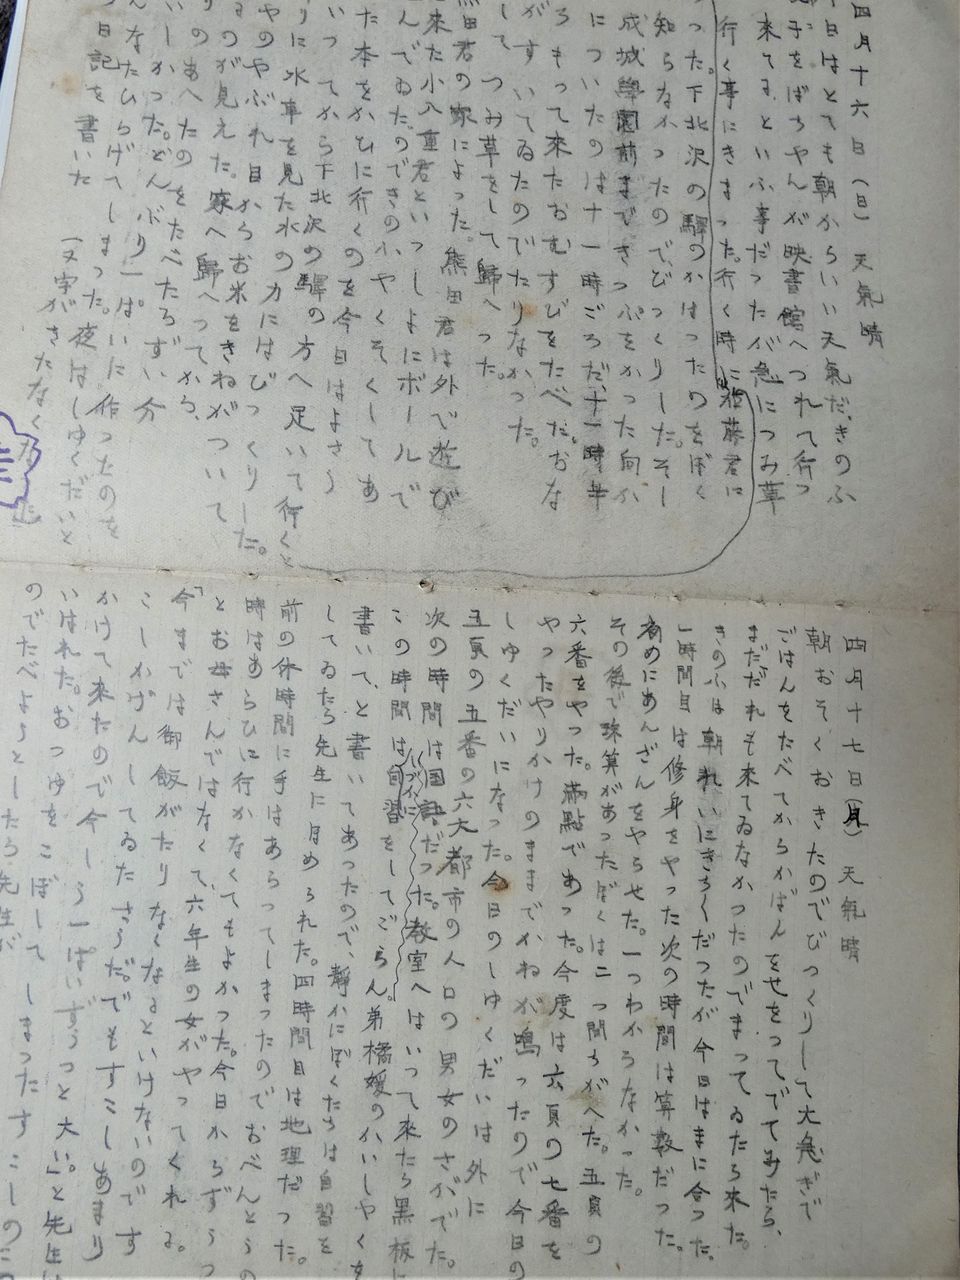 四月十六日(日) 天氣晴
今日はとても朝からいい天氣だ、きのふ
子をばちやんが映書館へつれて行つ
来てるといふ事だつたが急につみ草
行く事にきまつた。行く時に 藤君に
つた。下北沢の驛のかはつたのをぼく
知らなかつたのでびつくりした。そし
成城學園前まできつぷをかつた向か
についたのは十一時ごろだ、十一時半
ろもつて来たおむすびをたべた。おな
がすいてゐたのでたりなかつた。
して つみ草をして歸へつた。
熊田君の家によつた。熊田君は外で遊び
に来た小入重君といつしよにボールで
んでゐた。のできのふやくそくしてあ
た本をかひに行くのを今日はよさう
いつてから下北沢の驛の方へ足いて行くと
りに水車を見た水の力にはびつくりした。
やのやぶれ目からお米をきねがついて
るのが見えた。家へ歸へつてから、
りのあへたのをたべたらずい分
いしかつた。どんぶり一ぱいに作つたのを
んなたひらげてしまつた。夜はしゆくだいと
日記を書いた (文字がきたなくな
四月十七日(月) 天氣晴
朝おそくおきたのでびつくりして大急ぎで
ごはんをたべてからかばんをせをつてでてみたら、
まだだれも来てゐなかつたのでまつてゐたら来た。
きのふは朝れいにきちくだつたが今日はまに合つた。
一時間目は修身をやつた次の時間は算数だつた。
始めにあんざんをやらせた。一つわからなかつた。
その後で珠算があつたぼくは二つ間ちがへた。五頁の
六番をやつた。満點であつた。今度は六頁の七番を
やつたやりかけのままでかねが鳴つたので今日の
しゆくだいになつた。今日のしゆくだいは外に
五頁の五番の六大都市の人口の男女のさがでた。
次の時間は国語だつた。教室へはいつて来たら黒板に
この時間はしづかに自習をしてごらん。弟橘媛のかいしやくを
書いて、と書いてあつたので、靜かにぼくたちは自習を
してゐたら先生に月められた。四時間目は地理だつた。
前の休時間に手はあらつてしまつたのでおべんとうの
時はあらひに行かなくてもよかつた。今日からずうつ
とお母さんではなくて、六年生の女がやつてくれる。
「今までは御飯がたりなくなるといけないのです
こしかげんしてゐたさうだ。でもすこしあまり
かけて来たので今しう一ぱいずうつと大い。」と先生は
いはれた。おつゆをこぼしてしまつたすこしのこ
のでたべようとしたら先生が